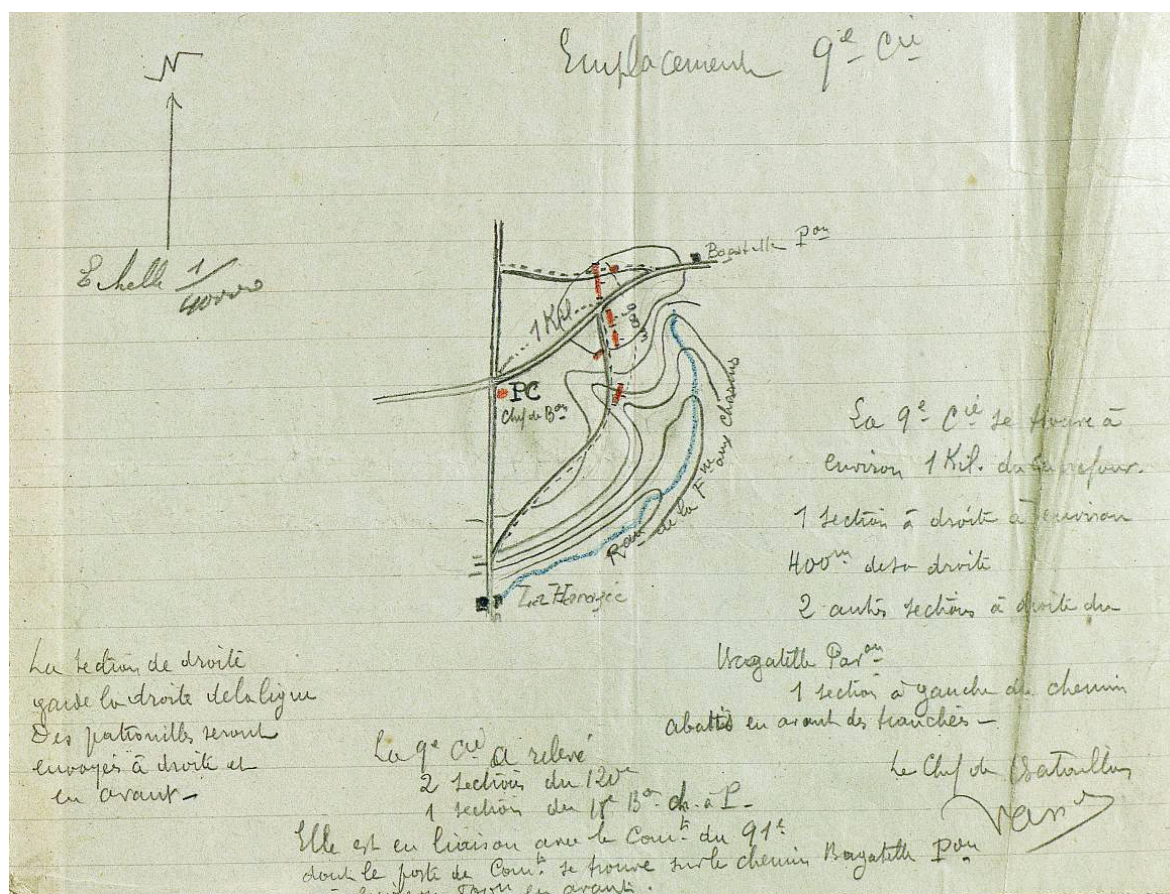 Emplacement 9e Cie
N
Echelle 1/40000
Bagatelle Pon
1 Kil.
300m
PC
Chef de Bon
Rau de la Fne aux Charmes
La Harazée
La 9e Cie se trouve à
environ 1 Kil. du carrefour.
1 section à droite à environ
400m de sa droite
2 autres sections à droite du
Bagatelle Pavon
1 section à gauche du chemin
abattis en avant des tranchées —
Le Chef de Bataillon
La section de droite
garde la droite de la ligne
Des patrouilles seront
envoyés à droite et
en avant —
La 9e Cie a relevé
2 sections du 120e
1 section du Bon ch. à P.
Elle est en liaison avec le Comt du 91e
dont le poste de Comt se trouve sur le chemin Bagatelle Pon
à environ en avant.